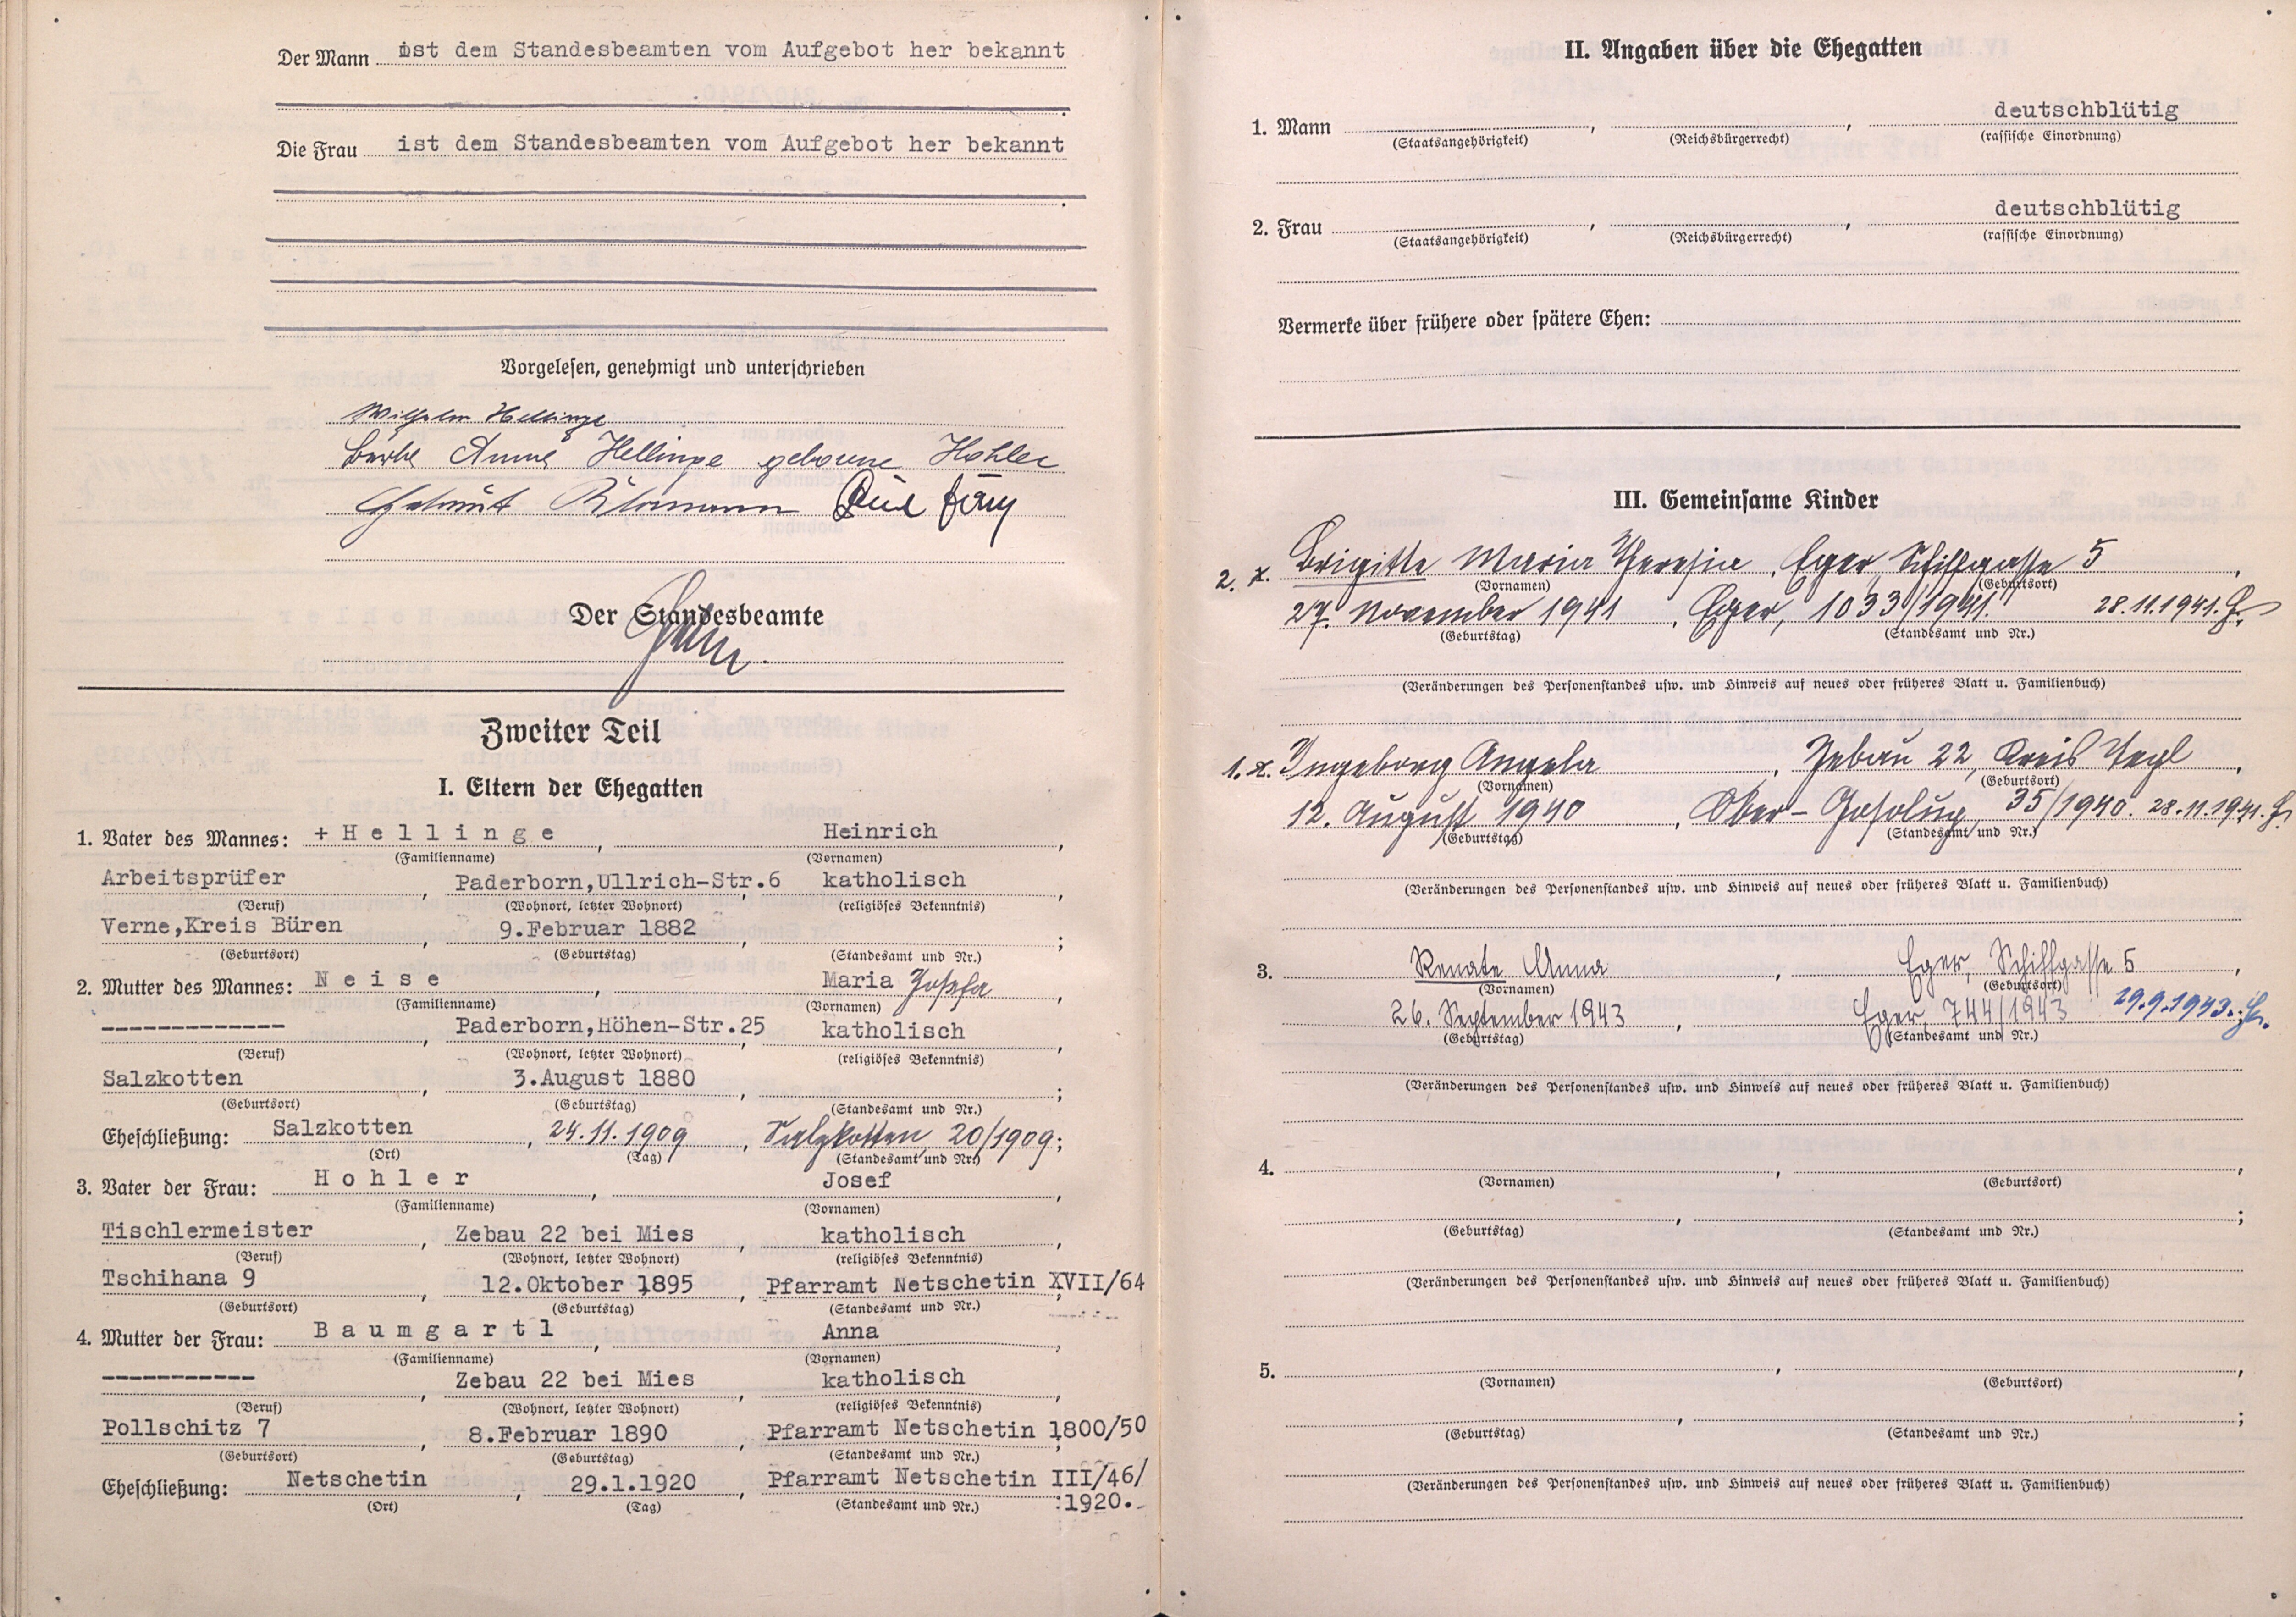 Der Mann ist dem Standesbeamten vom Aufgebot her bekannt
Die Frau ist dem Standesbeamten vom Aufgebot her bekannt
Vorgelesen, genehmigt und unterschrieben
Wilhelm Hellinge
Anna Hellinge geborene Hohler
Der Standesbeamte
Zweiter Teil
I. Eltern der Ehegatten
1. Vater des Mannes: + Hellinge, Heinrich,
(Familienname) (Vornamen)
Arbeitsprüfer, Paderborn,Ullrich-Str.6, katholisch,
(Beruf) (Wohnort, letzter Wohnort) (religiöses Bekenntnis)
Verne,Kreis Büren, 9.Februar 1882, ;
(Geburtsort) (Geburtstag) (Standesamt und Nr.)
2. Mutter des Mannes: Neise, Maria Josefa,
(Familienname) (Vornamen)
-------------, Paderborn,Höhen-Str.25, katholisch,
(Beruf) (Wohnort, letzter Wohnort) (religiöses Bekenntnis)
Salzkotten, 3.August 1880, ;
(Geburtsort) (Geburtstag) (Standesamt und Nr.)
Eheschließung: Salzkotten, 24.11.1909, Salzkotten 20/1909;
(Ort) (Tag) (Standesamt und Nr.)
3. Vater der Frau: Hohler, Josef,
(Familienname) (Vornamen)
Tischlermeister, Zebau 22 bei Mies, katholisch,
(Beruf) (Wohnort, letzter Wohnort) (religiöses Bekenntnis)
Tschihana 9, 12.Oktober 1895, Pfarramt Netschetin XVII/64;
(Geburtsort) (Geburtstag) (Standesamt und Nr.)
4. Mutter der Frau: Baumgartl, Anna,
(Familienname) (Vornamen)
-----------, Zebau 22 bei Mies, katholisch,
(Beruf) (Wohnort, letzter Wohnort) (religiöses Bekenntnis)
Pollschitz 7, 8.Februar 1890, Pfarramt Netschetin 1800/50;
(Geburtsort) (Geburtstag) (Standesamt und Nr.)
Eheschließung: Netschetin, 29.1.1920, Pfarramt Netschetin III/46/
(Ort) (Tag) (Standesamt und Nr.) 1920.
II. Angaben über die Ehegatten
1. Mann , , deutschblütig
(Staatsangehörigkeit) (Reichsbürgerrecht) (rassische Einordnung)
2. Frau , , deutschblütig
(Staatsangehörigkeit) (Reichsbürgerrecht) (rassische Einordnung)
Vermerke über frühere oder spätere Ehen:
III. Gemeinsame Kinder
2. x. Brigitte Maria Theresia, Eger, Schiffgasse 5,
(Vornamen) (Geburtsort)
27. November 1941, Eger, 1033/1941. 28.11.1941.
(Geburtstag) (Standesamt und Nr.)
(Veränderungen des Personenstandes usw. und Hinweis auf neues oder früheres Blatt u. Familienbuch)
1. x. Ingeborg Angela, Zebau 22, Kreis,
(Vornamen) (Geburtsort)
12. August 1940, Ober-, 35/1940. 28.11.1941.
(Geburtstag) (Standesamt und Nr.)
(Veränderungen des Personenstandes usw. und Hinweis auf neues oder früheres Blatt u. Familienbuch)
3. Renate Anna, Eger, Schiffgasse 5,
(Vornamen) (Geburtsort)
26. September 1943, Eger, 744/1943 29.9.1943.
(Geburtstag) (Standesamt und Nr.)
(Veränderungen des Personenstandes usw. und Hinweis auf neues oder früheres Blatt u. Familienbuch)
4. , ,
(Vornamen) (Geburtsort)
, ;
(Geburtstag) (Standesamt und Nr.)
(Veränderungen des Personenstandes usw. und Hinweis auf neues oder früheres Blatt u. Familienbuch)
5. , ,
(Vornamen) (Geburtsort)
, ;
(Geburtstag) (Standesamt und Nr.)
(Veränderungen des Personenstandes usw. und Hinweis auf neues oder früheres Blatt u. Familienbuch)